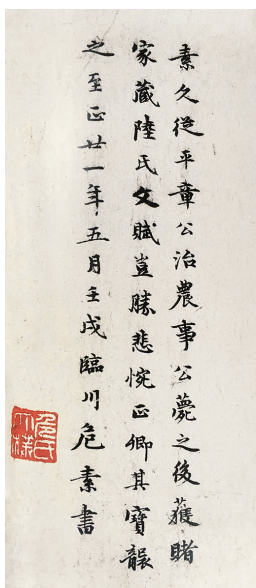 素久從平章公治農事公薨之後獲睹
家藏陸氏文賦豈勝悲惋正卿其寶襲
之至正廿一年五月壬戌臨川危素書
危氏
太樸